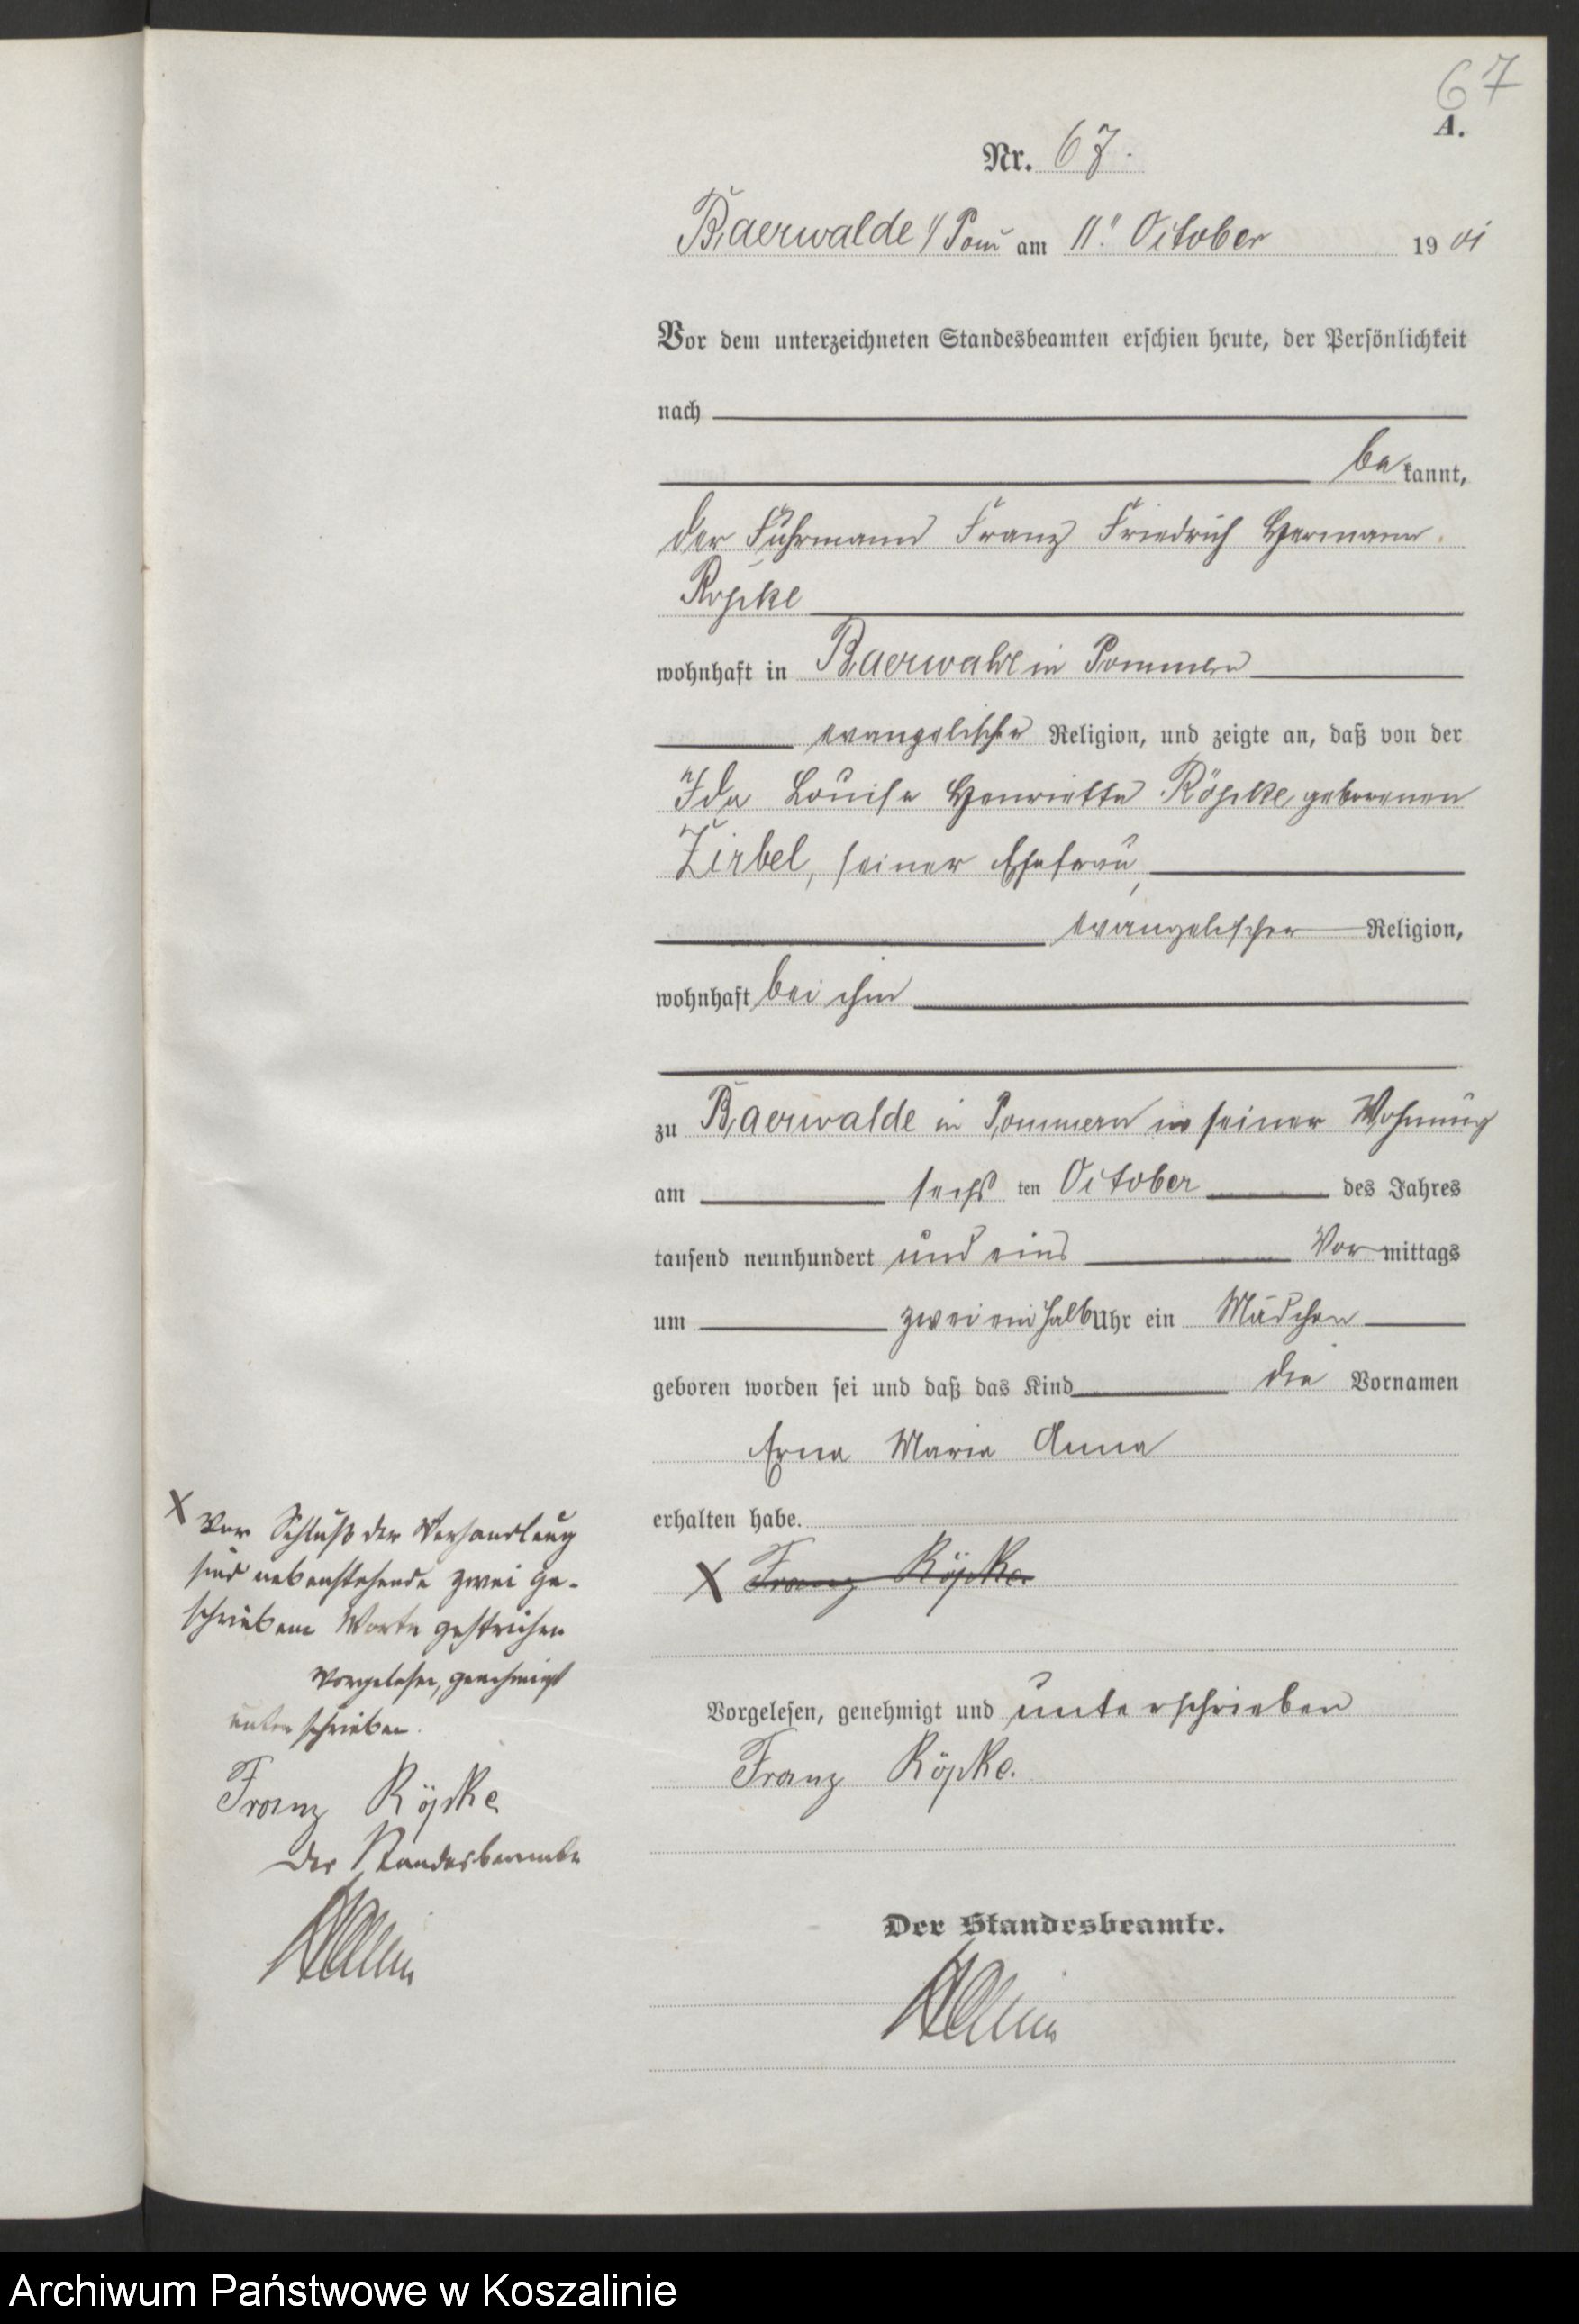 67
A.
Nr. 67.
Baerwalde i/Pom am 11ten October 1901
Vor dem unterzeichneten Standesbeamten erschien heute, der Persönlichkeit
nach
bekannt,
der Fuhrmann Franz Friedrich Hermann
Röpke
wohnhaft in Baerwalde in Pommern
evangelischer Religion, und zeigte an, daß von der
Ida Louise Henriette Röpke geborenen
Zirbel, seiner Ehefrau,
evangelischer Religion,
wohnhaft bei ihm
zu Baerwalde in Pommern in seiner Wohnung
am sechsten October des Jahres
tausend neunhundert und eins Vormittags
um zweieinhalb Uhr ein Mädchen
geboren worden sei und daß das Kind die Vornamen
Erna Marie Anna
erhalten habe.
X Franz Röpke.
X Vor Schluß der Verhandlung
sind nebenstehende zwei ge-
schriebene Worte gestrichen
Vorgelesen, genehmigt
unterschrieben.
Franz Röpke
Der Standesbeamte
Vorgelesen, genehmigt und unterschrieben
Franz Röpke.
Der Standesbeamte.
Archiwum Państwowe w Koszalinie